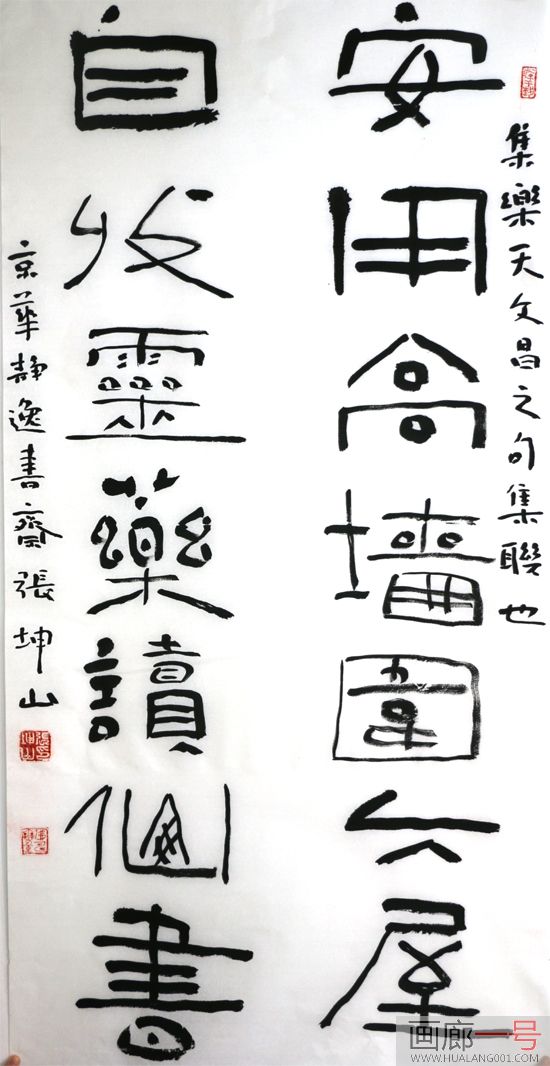 集樂天文昌之句集聯也
安用高墙圍大屋
自收靈藥讀仙書
京華靜逸書齋張坤山
画廊一号
WWW.HUALANG001.COM